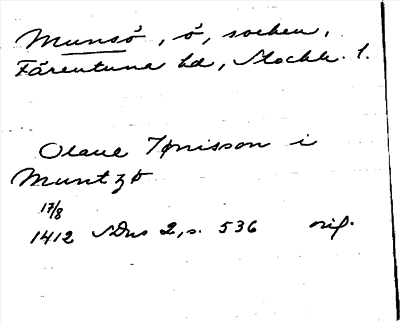 Munsö, ö, socken,
Färentuna hd, Stockh. l.
Olaue Jønisson i
Muntzø
17/8
1412 SDns 2, s. 536 orig.